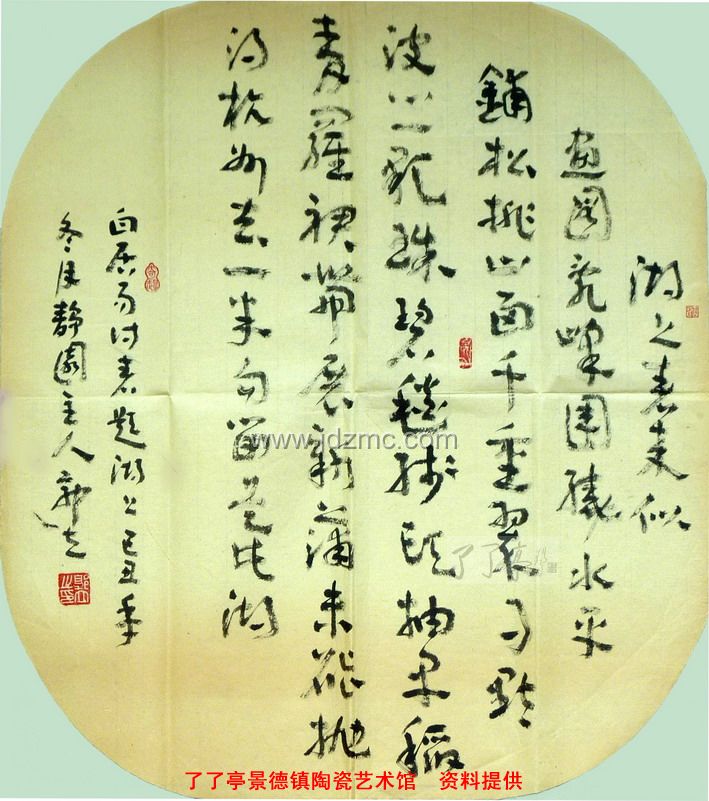 湖上春来似
畫圖亂峰圍繞水平
鋪松排山面千重翠月點
波心一顆珠碧毯线头抽早稻
青羅裙帶展新蒲未能抛
得杭州去一半勾留是此湖
白居易诗春题湖上己丑年
冬月靜園主人
www.jdzmc.com
了了亭景德镇陶瓷艺术馆 资料提供